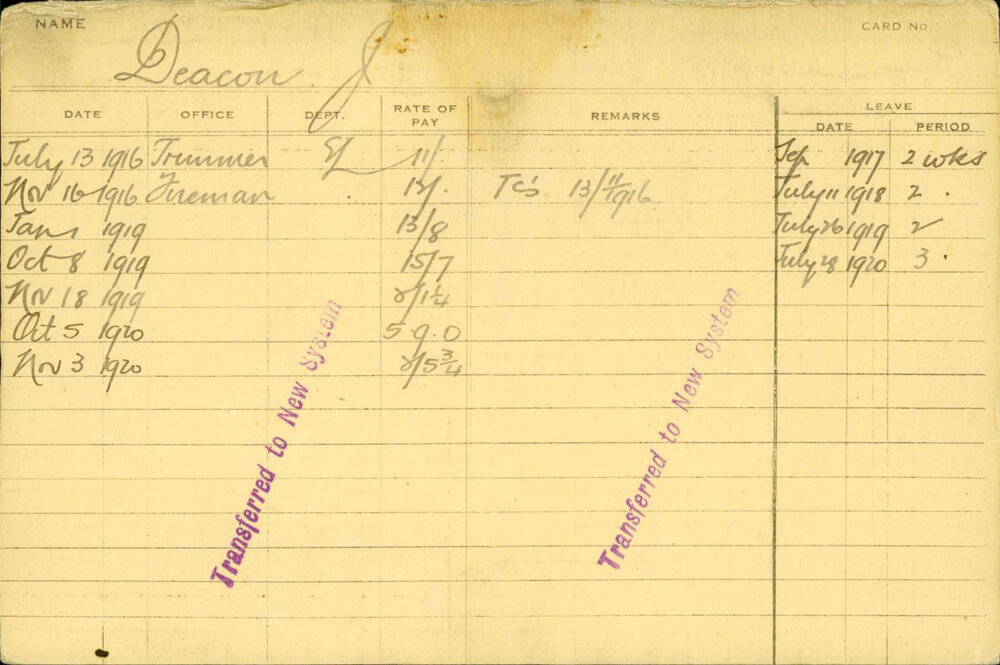 NAME
CARD No.
Deacon. J
DATE OFFICE DEPT. RATE OF PAY REMARKS
LEAVE
DATE PERIOD
July 13 1916 Trimmer 11/. Sep 1917 2 wks
Nov 16 1916 Fireman . 12/. TC's 13/11/1916 July 11 1918 2 .
Jan 1 1919 13/8 July 26 1919 2
Oct 8 1919 15/7 July 28 1920 3 .
Nov 18 1919 2/1¼
Oct 5 1920 5.9.0
Nov 3 1920 2/5¾
Transferred to New System
Transferred to New System